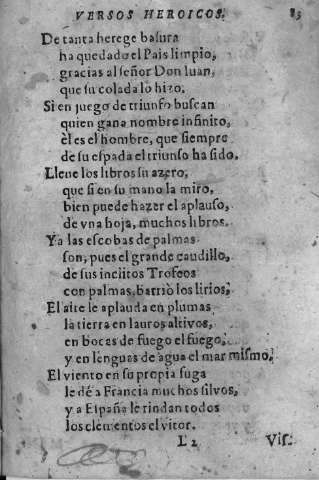 VERSOS HEROICOS. 83
De tanta herege basura
ha quedado el Pais limpio,
gracias al señor Don Iuan,
que su colada lo hizo.
Si en juego de triunfo buscan
quien gana nombre infinito,
èl es el hombre, que siempre
de su espada el triunfo ha sido.
Llene los libros su azero,
que si en su mano la miro,
bien puede hazer el aplauso,
de vna hoja, muchos libros.
Ya las escobas de palmas
son, pues el grande caudillo,
de sus inclitos Trofeos
con palmas, barriò los lirios,
El aire le aplauda en plumas
la tierra en lauros altivos,
en bocas de fuego el fuego,
y en lenguas de agua el mar mismo.
El viento en su propia fuga
le dè a Francia muchos silvos,
y a España le rindan todos
los elementos el vitor.
L 2 Vis-